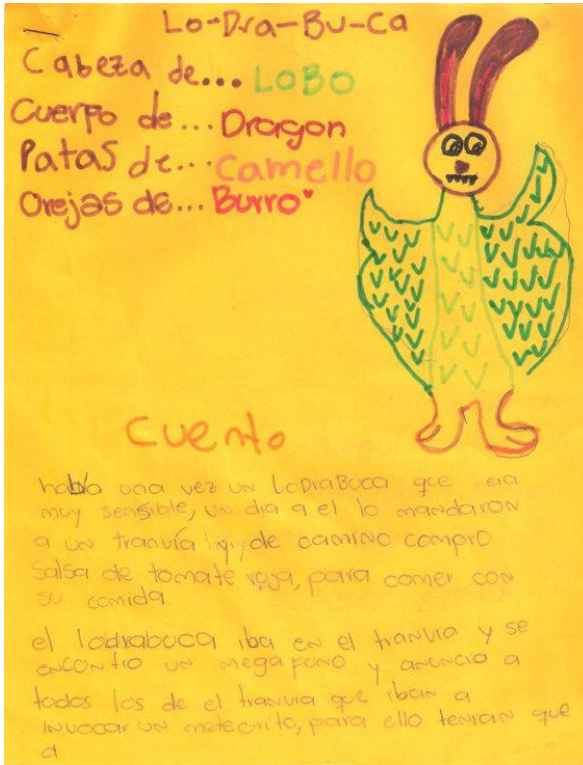 Lo-Dra-Bu-Ca
Cabeza de... LOBO
Cuerpo de... Dragon
Patas de... Camello
Orejas de... Burro
Cuento
había una vez un LoDraBuca que era
muy sensible, un dia a el lo mandaron
a un tranvía y de camino compro
salsa de tomate roja, para comer con
su comida.
el lodrabuca iba en el tranvia y se
encontro un megafono y anuncio a
todos los de el tranvia que iban a
invocar un meteorito, para ello tenian que
a